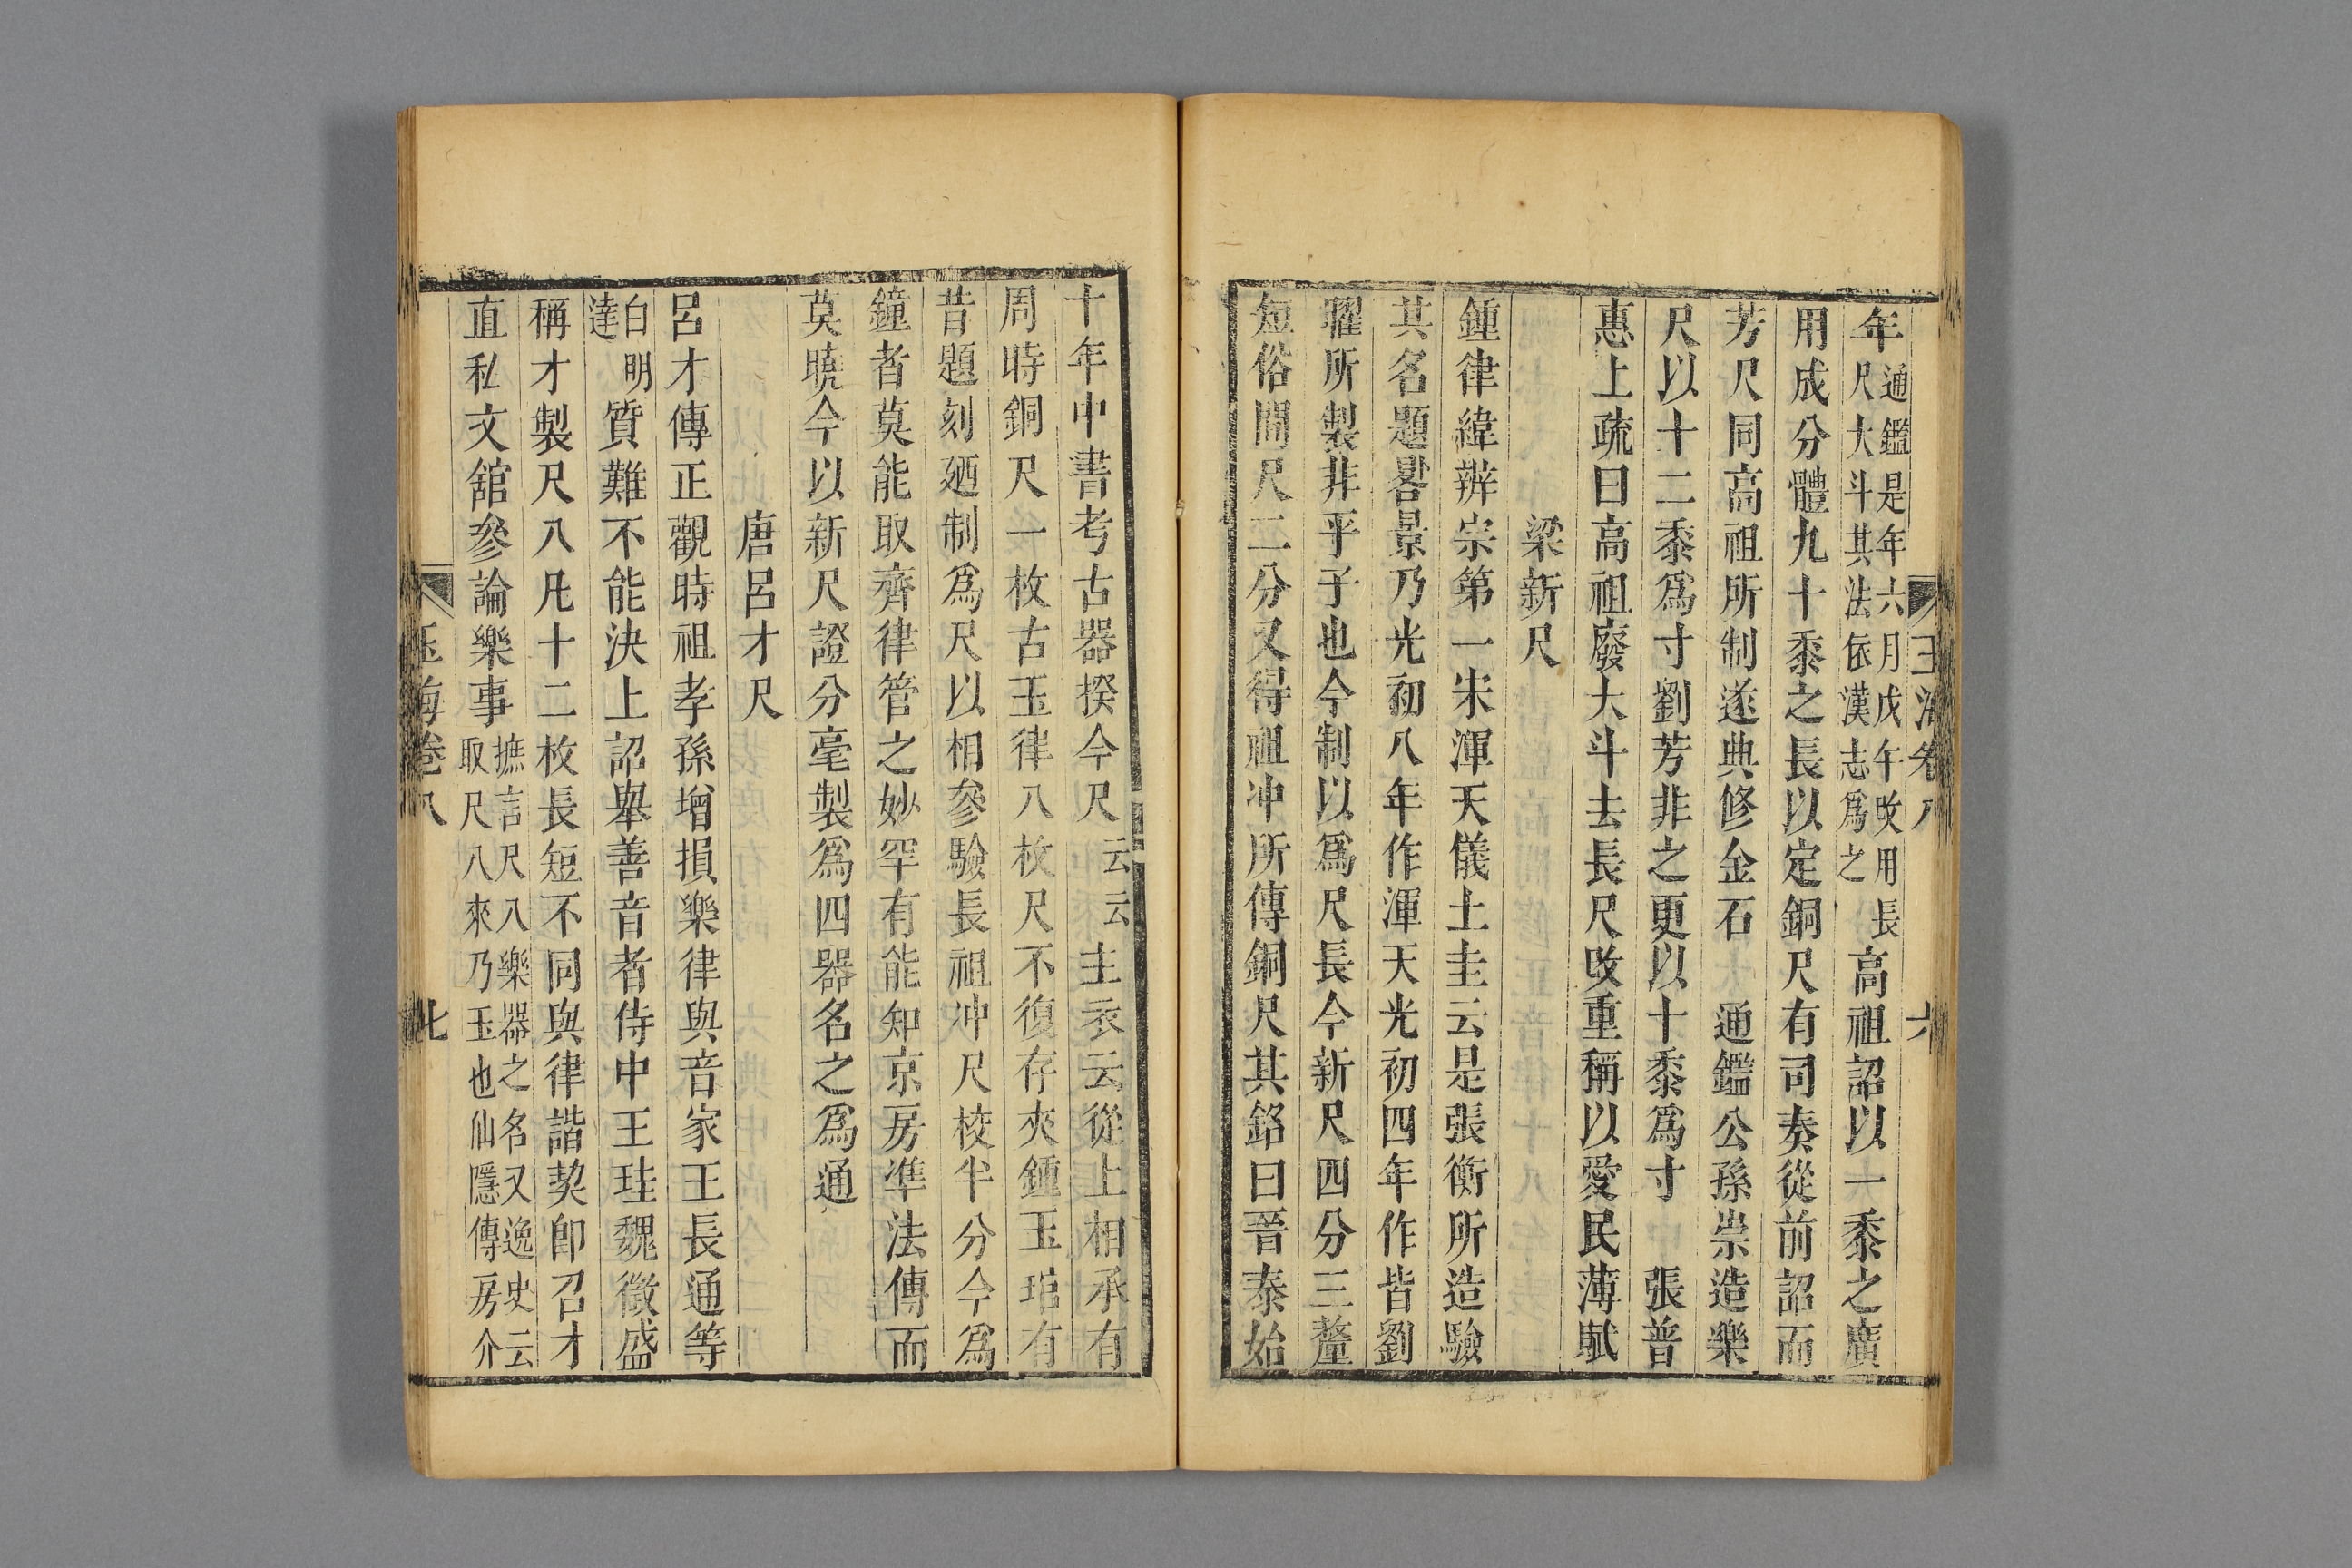 玉海卷八 六
年通鑑是年六月戊午改用長尺大斗其法依漢志爲之高祖詔以一黍之廣
用成分體九十黍之長以定銅尺有司奏從前詔而
芳尺同高祖所制遂典修金石 通鑑公孫崇造樂
尺以十二黍爲寸劉芳非之更以十黍爲寸 張普
惠上疏曰高祖廢大斗去長尺改重稱以愛民薄賦
梁新尺
鍾律緯辨宗第一宋渾天儀土圭云是張衡所造驗
其名題晷景乃光初八年作渾天光初四年作皆劉
曜所製非平子也今制以爲尺長今新尺四分三釐
短俗間尺二分又得祖冲所傳銅尺其銘曰晉泰始
十年中書考古器揆今尺云云主衣云從上相承有
周時銅尺一枚古玉律八枚尺不復存夾鍾玉琯有
昔題刻廼制爲尺以相參驗長祖冲尺校半分今爲
鐘者莫能取齊律管之妙罕有能知京房準法傳而
莫曉今以新尺證分毫製爲四器名之爲通
唐呂才尺
呂才傳正觀時祖孝孫增損樂律與音家王長通等
白明達質難不能決上詔舉善音者侍中王珪魏徵盛
稱才製尺八凡十二枚長短不同與律諧契卽召才
直私文舘參論樂事摭言尺八樂器之名又逸史云取尺八來乃玉也仙隱傳房介
玉海卷八 七